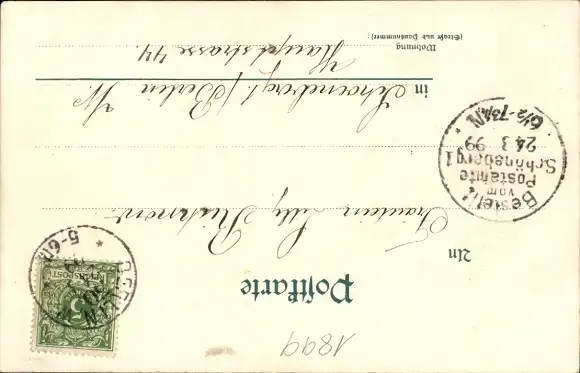 1899
Postkarte
An
Fräulein Lilly
in Schoeneberg / Berlin W.
Wohnung
(Straße und Hausnummer)
Hauptstrasse 44
Bestellt
vom
Postamte
Schöneberg 1
24 3 99
6½-7¾N.
BERLIN
5-6N
REICHSPOST
5